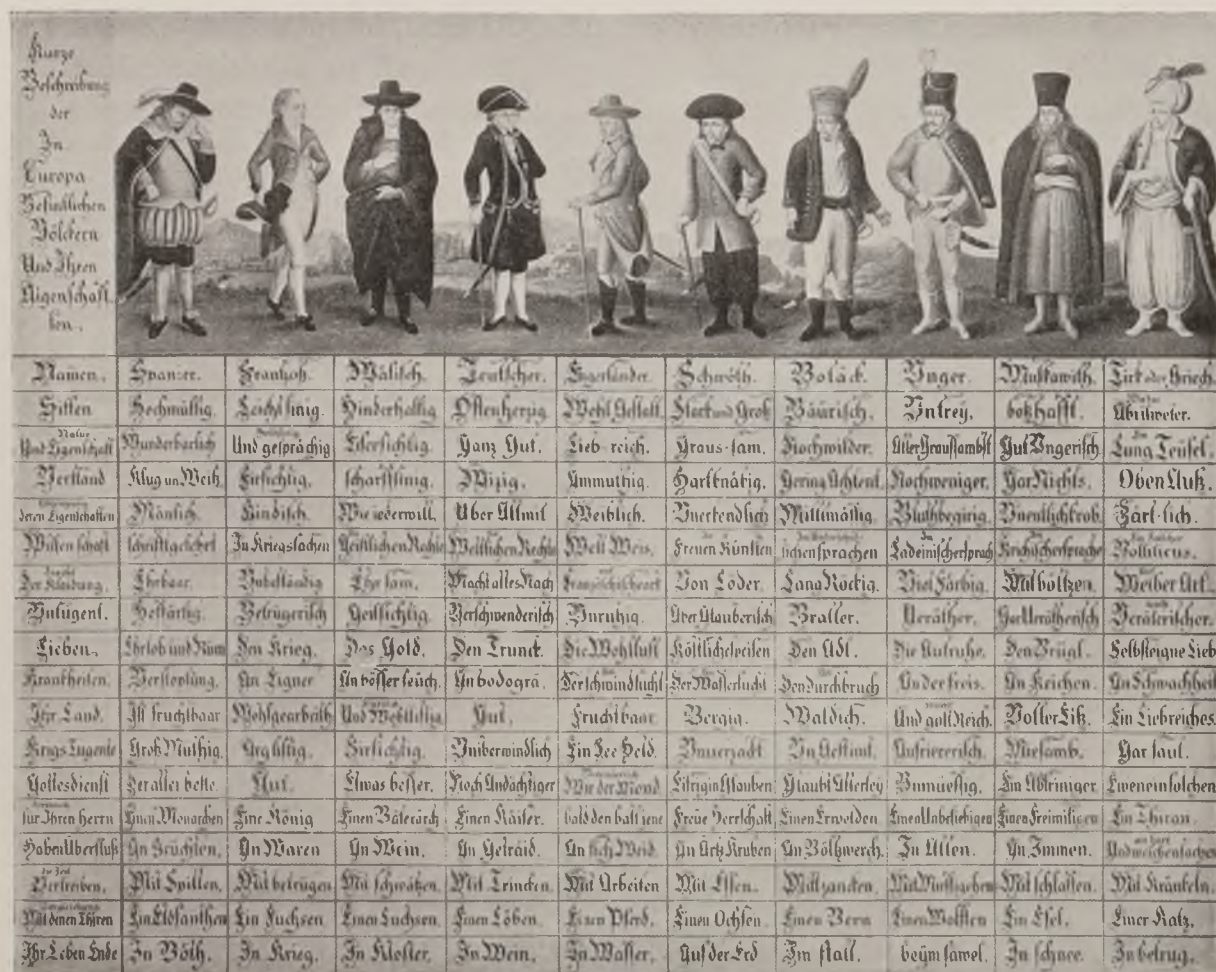 Kurze
Beschreibung
der
In
Europa
Befindlichen
Völckern
Und Ihren
Aigenschafften.
Namen. Spanier. Frantzoß. Wälisch. Teutscher. Engerländer. Schwöth. Boläck. Vnger. Muskawith. Tirk oder Griech.
Sitten Hochmüttig. Leichtsinig. Hinderhaltig Offenherzig Wohl Gestalt. Stark und Groß Bäurisch. Vntrey. boßhafft. Abrilweter.
Und Eigenschaft Wunderbarlich Und gesprächig Eifersichtig. Ganz Gut. Lieb-reich. Graus-sam. Nochwilder. Aller Graussambst Gut Vngerisch Lung Teufel.
Verstand Klug un Weiß Firsichtig. scharffsinig. Wizig. Ammuthig. Hartknätig. Gering Achtent. Nochweniger. Gar Nichts. Oben Auß.
deren Eigenschaften Mänlich. Kindisch. Wie iederwill. Über Allmit Weiblich. Vnerkendlich Mittlmässig. Bluthbegirig. Zärt-lich.
Wissenschaft schrifftgelehrt In Kriegssachen Geistlichen Rechte Weltlichen Rechte Welt Weis. Freuen Künsten Ladeinischersprach Krichischersprache Bolliticus.
Der Kleidung. Ehrbaar. Ehrsam. Macht alles Nach Von Löder. Lang Röckig. Viel Färbig. Mit böltzen. Weiber Art.
Vntugent. Hoffärtig. Betrügerisch Geillsichtig. Verschwenderisch Vnruhig. Über Glauberisch Braller. Veräther. Gar Verätherisch Verätterischer.
Lieben. Ehrlob und Rüm Den Krieg. Das Gold. Den Trunck. Die Wohllust Köstlicheспeisen Den Adl. Die Aufruhe. Den Brügl. Selbsteigne Lieb
Krankheiten. Verstopfung. An Eigner An bösser seüch. An bodogrä. Der schwindsucht Der Wassersucht Den durchbruch An der freis. An Keichen. An Schwachheit
Ihr Land. Ist fruchtbaar Wohlgearbeith Gut. Fruchtbaar Bergig. Waldich. Und golt Reich. Voller Eiß. Ein Liebreiches.
Krigs Tugente Groß Muthig. Arglistig. Firsichtig. Vniberwindlich Ein See Held. Vnverzadt Vn Gestimt. Aufriererisch. Miesamb. Gar faul.
Gottesdienst Der aller beste. Gut. Etwas besser. Noch Andächtiger Wie der Mond. Eifrig in Glauben Glaubt Allerley Vnmüessig. Ein Abtriniger. Eweneinsolchen
für Ihren herrn Einen Monarchen Eine König Einen Bäterärch Einen Kaiser. bald den balt jene Freüe Herrschaft Einen Erwelden Einen Unbeliebigen Einen Freimilligen Ein Thiran.
Haben Überfluß An Früchten. An Waren An Wein. An Getraid. An fich Weid. An Artz Kruben An Böltzwerch. In Allen. An Immen.
Vertreiben. Mit Spillen. Mit betrügen Mit schwätzen. Mit Trincken. Mit Arbeiten Mit Essen. Mit zancken. Mit Müessigehen Mit schlaffen. Mit Kränkeln.
Mit denen Thiren Ein Elofanthen Ein Fuchsen Einen Luchsen. Einen Löben. Einen Pferd. Einen Ochsen. Einen Bern Einen Wolffen Ein Esel. Einer Katz.
Ihr Leben Ende In Böth. In Krieg. In Kloster. In Wein. In Wasser. Auf der Erd Im stall. beym sawel. In schnee. In betrug.